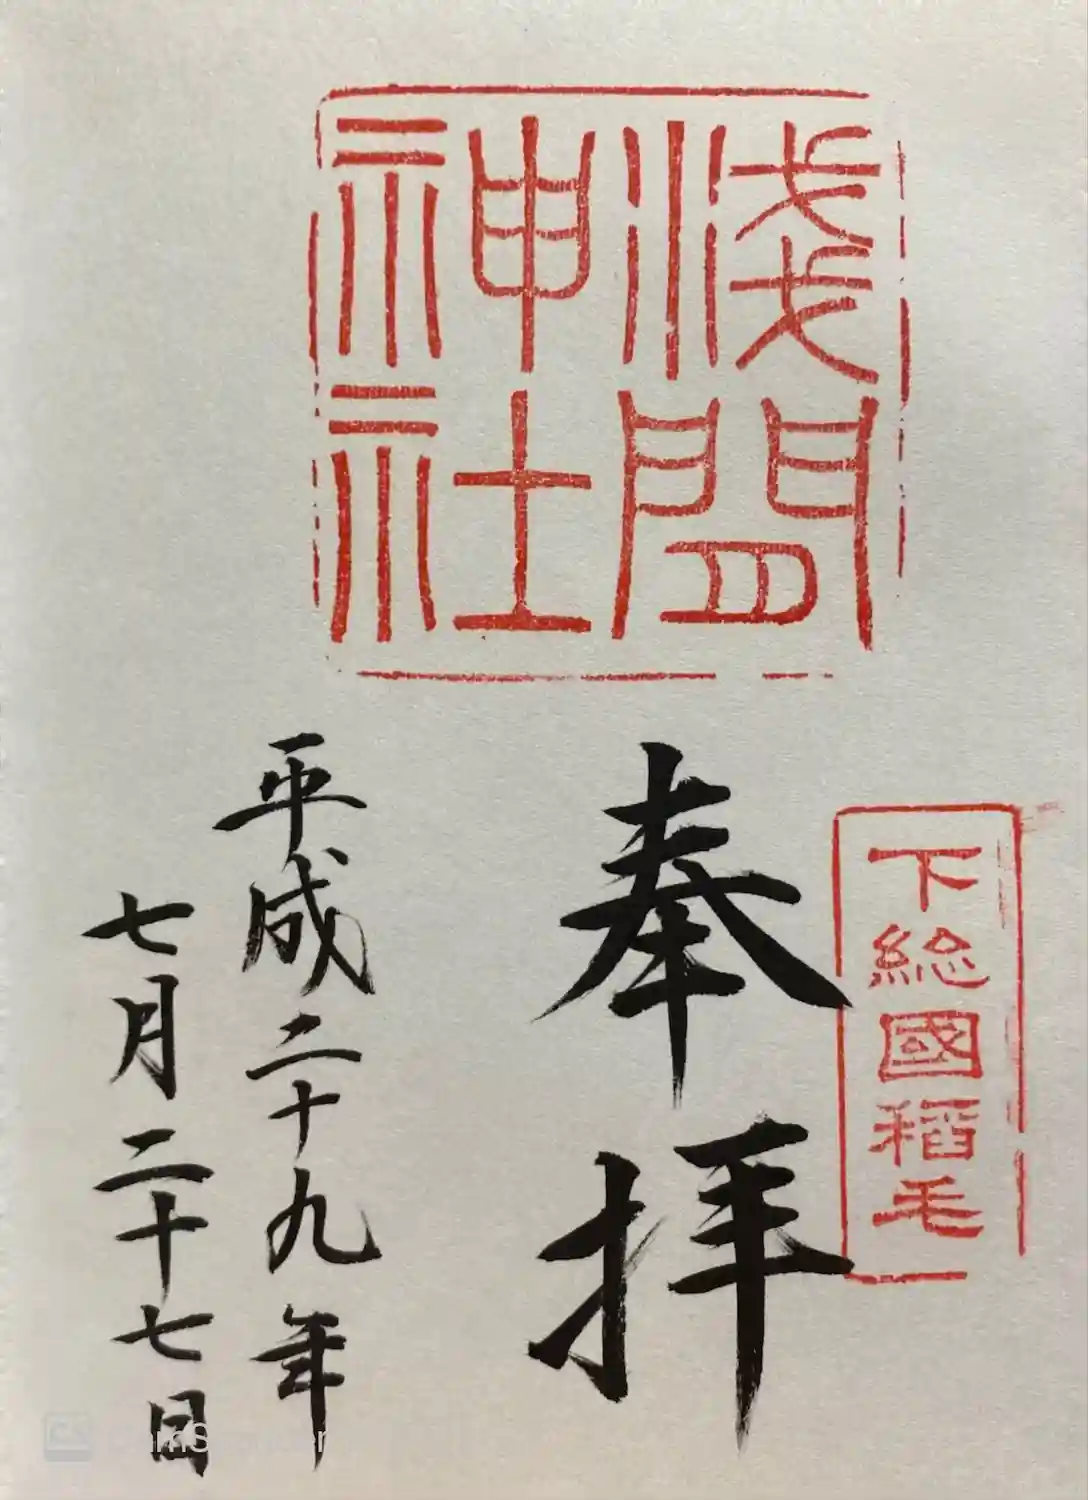 淺間
神社
下総國稻毛
奉拝
平成二十九年
七月二十七日